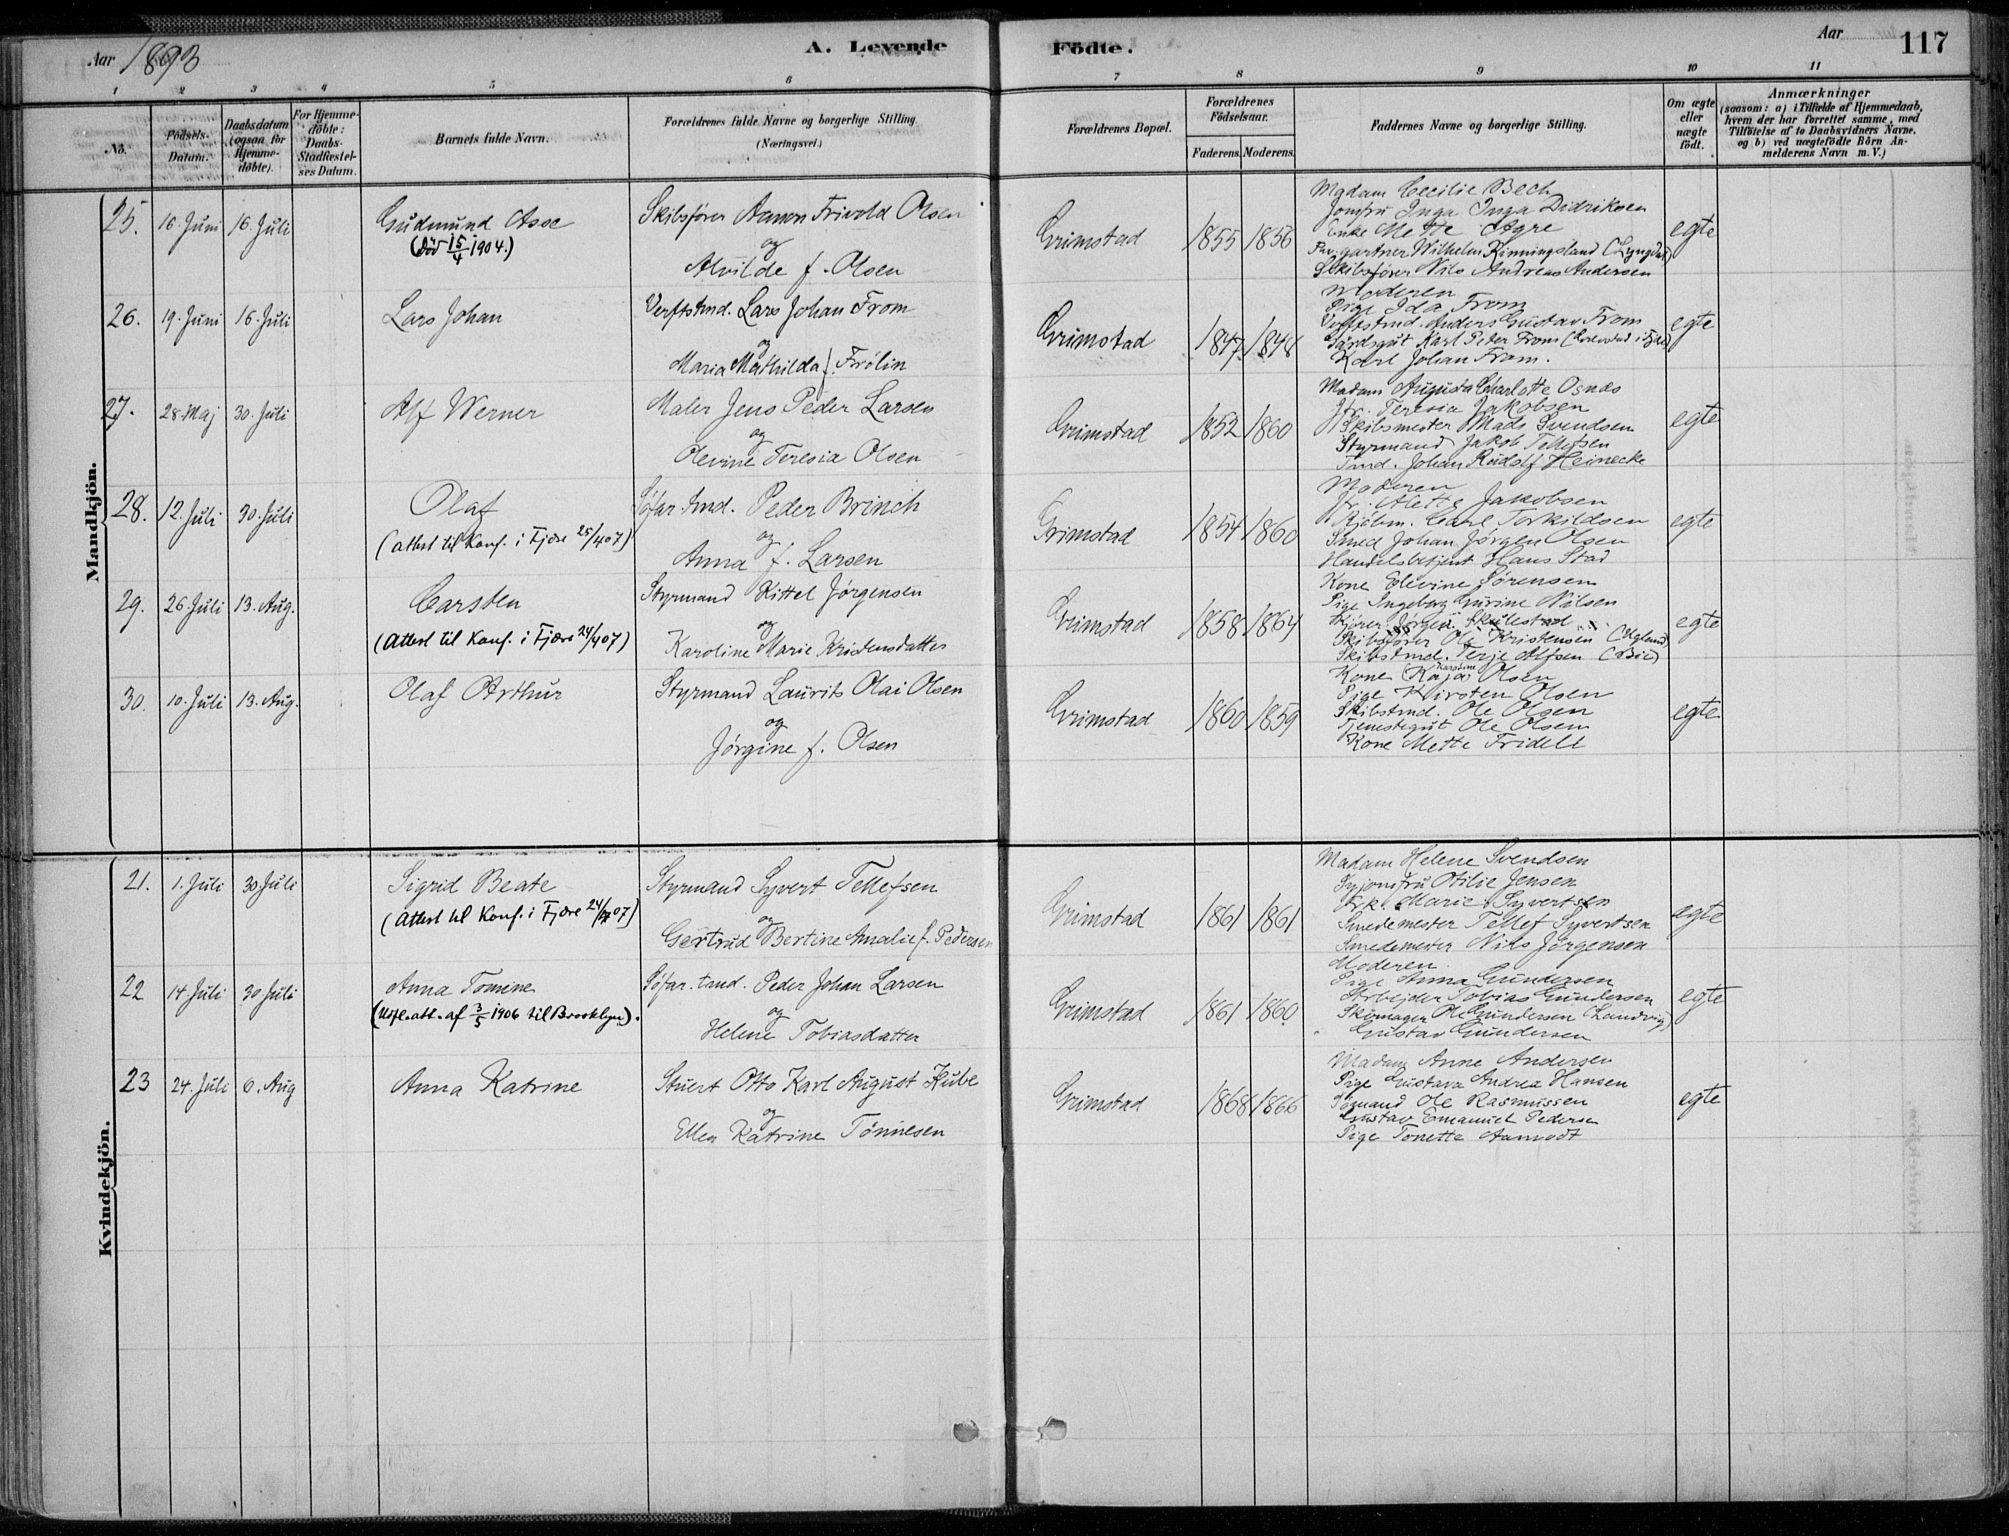 Aar 1893
A. Levende Födte.
Aar
117
1 2 3 4 5 6 7 8 9 10 11
No.
Födsels-Datum.
Daabsdatum (ogsaa for Hjemmedöbte).
For Hjemmedöbte: Daabs-Stadfæstelses Datum.
Barnets fulde Navn.
Forældrenes fulde Navne og borgerlige Stilling (Næringsvei.)
Forældrenes Bopæl.
Forældrenes Födselsaar.
Faderens. Moderens.
Faddernes Navne og borgerlige Stilling.
Om ægte eller nægte födt.
Anmærkninger
(saasom: a) i Tilfælde af Hjemmedaab, hvem der har forrettet samme, med Tilföielse af to Daabsvidners Navne, og b) ved nægtefödte Börn Anmelderens Navn m. V.)
Mandkjön.
25. 16 Juni 16. Juli Gudmund Asse Skibsfører Aanon Frivold Olsen
(Død 15/4 1904.) og
Alvilde f. Olsen
Grimstad 1855 1856 egte
Madam Cecilie Bech
Jomfru Inga Inga Didriksen
Enke Mette Agre
gartner Wilhelm Kinningsland (Lyngdal)
Skibsfører Nils Andreas Andersen
26. 19. Juni 16. Juli Lars Johan Verftstmd. Lars Johan From
og
Maria Mathilda f. Frölin
Grimstad 1847 1848 egte
Moderen
Pige Ida From
Verftstmd. Anders Gustav From
Gårdsgut Karl Peder From
Karl Johan From.
27. 28 Maj 30. Juli Alf Werner Maler Jens Peder Larsen
og
Olevine Teresia Olsen
Grimstad 1852 1860 egte
Madam Augusta Charlotte Osnæs
Jfr. Teresia Jakobsen
Skibsmester Mads Svendsen
Styrmand Jakob Tellefsen
Tmd. Johan Rudolf Heinecke
28. 12. Juli 30. Juli Olaf Söfar. tmd. Peder Brinch
(Attest til Konf. i Fjære 25/4 07) og
Anna f. Larsen
Grimstad 1854 1860 egte
Moderen
Jfr. Alette Jakobsen
Kjöbm. Carl Torkildsen
Smed Johan Jörgen Olsen
Handelsbetjent Hans Stad
29. 26 Juli 13. Aug. Carsten Styrmand Kittel Jørgensen
(Attest til Konf. i Fjære 24/4 07) og
Karoline Marie Kristensdatter
Grimstad 1858 1864 egte
Kone Elevine Sørensen
Pige Ingeborg Gurine Nilsen
Jørgen
Skibsfører Ole Kristensen
Skibstmd. Terje Alfsen (Bie)
30. 10. Juli 13. Aug. Olaf Arthur Styrmand Laurits Olai Olsen
og
Jørgine f. Olsen
Grimstad 1860 1859 egte
Kone Kaja Karoline Olsen
Pige Kirsten Olsen
Skibstmd. Ole Olsen
Tjenstegut Ole Olsen
Kone Mette Fridell
Kvindekjön.
21. 1. Juli 30 Juli Sigrid Beate Styrmand Syvert Tellefsen
(Attest til Konf. i Fjære 24/4 07) og
Gertrud Bertine Amalie f. Pedersen
Grimstad 1861 1861 egte
Madam Helene Svendsen
Syjomfru Otilie Jensen
Frk. Marie Syvertsen
Smedemester Tellef Syvertsen
Smedemester Nils Jørgensen
22 14 Juli 30 Juli Anna Tomine Söfar. tmd. Peder Johan Larsen
(Udfl.att. af 3/5 1906 til Brooklyn). og
Helene Tobiasdatter
Grimstad 1861 1860 egte
Moderen
Pige Anna Gundersen
Arbejder Tobias Gundersen
Skomager Ole Gundersen (Landvig)
" Gustav Gundersen
23 24. Juli 6. Aug Anna Katrine Stuert Otto Karl August Kube
og
Ellen Katrine Tönnesen
Grimstad 1868 1866 egte
Madam Anne Andersen
Pige Gustava Andrea Hansen
Sømand Ole Rasmussen
Gustav Emanuel Pedersen
Pige Tonette Aamodt